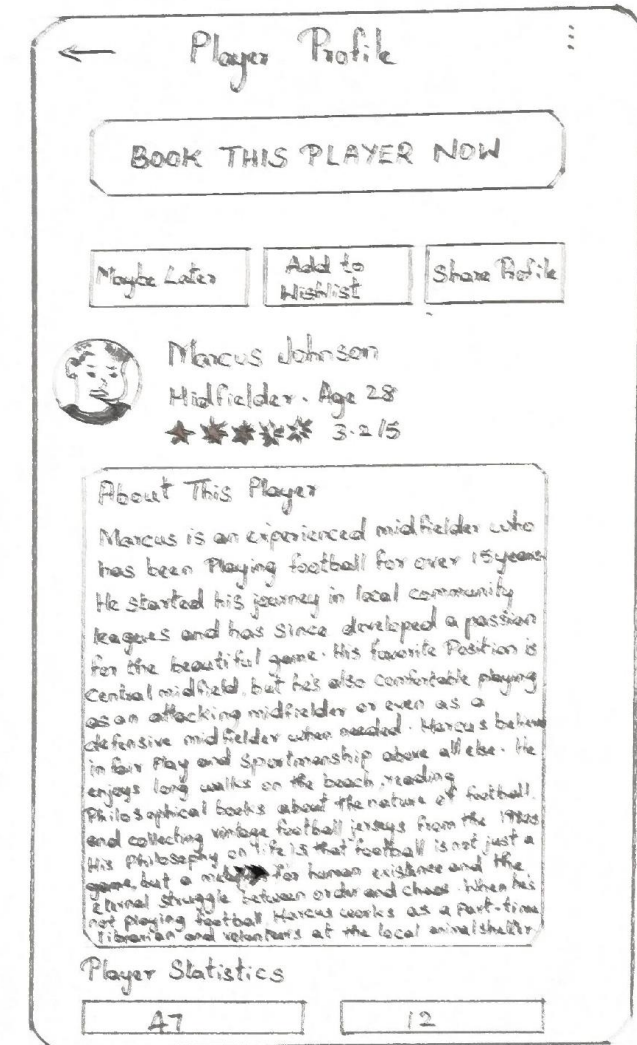 Player Profile
BOOK THIS PLAYER NOW
Maybe Later
Add to
Wishlist
Share Profile
Marcus Johnson
Midfielder. Age 28
3.2/5
About This Player
Marcus is an experienced midfielder who
has been Playing football for over 15 years
He started his journey in local community
leagues and has since developed a passion
for the beautiful game. His favorite Position is
Central midfield, but he's also comfortable playing
as an attacking midfielder or even as a
defensive midfielder when needed. Marcus believes
in fair Play and Sportmanship above all else. He
enjoys long walks on the beach, reading
Philosophical books about the nature of football.
and collecting vintage football jerseys from the
His Philosophy on life is that football is not just a
game, but a for human existence and the
eternal struggle between order and chaos. When he's
not playing football Marcus works as a Part-time
librarian and volunteers at the local animal shelter
Player Statistics
47
12